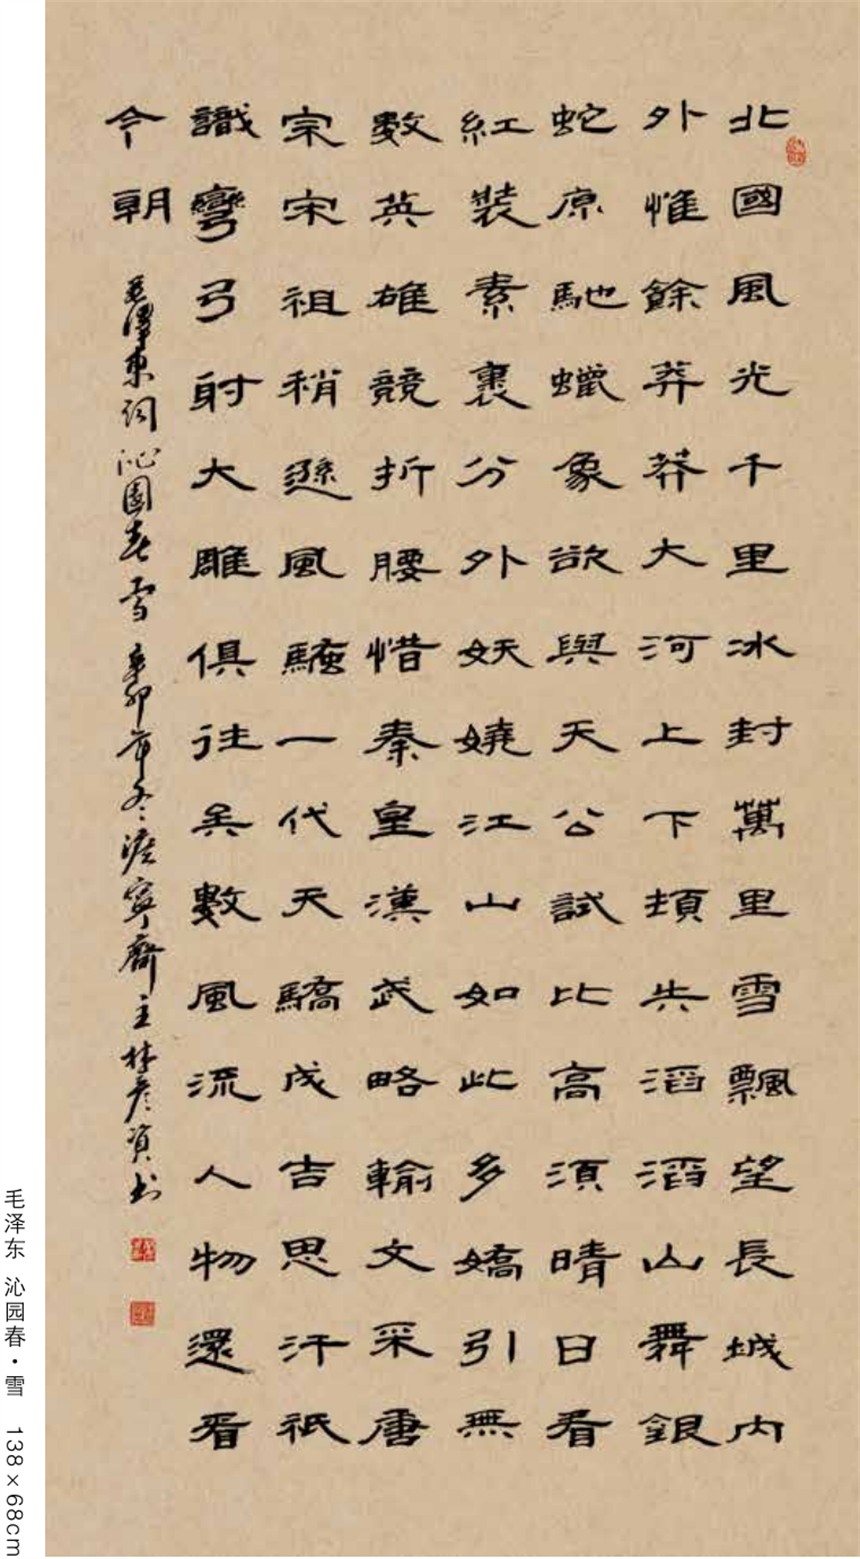 北國風光千里冰封萬里雪飄望長城內
外惟餘莽莽大河上下頓失滔滔山舞銀
蛇原馳蠟象欲與天公試比高須晴日看
紅裝素裹分外妖嬈江山如此多嬌引無
數英雄競折腰惜秦皇漢武略輸文采唐
宗宋祖稍遜風騷一代天驕成吉思汗祇
識彎弓射大雕俱往矣數風流人物還看
今朝 毛澤東詞沁園春雪 辛卯年冬 寧齋主林彥 书
毛泽东 沁园春·雪 138×68cm